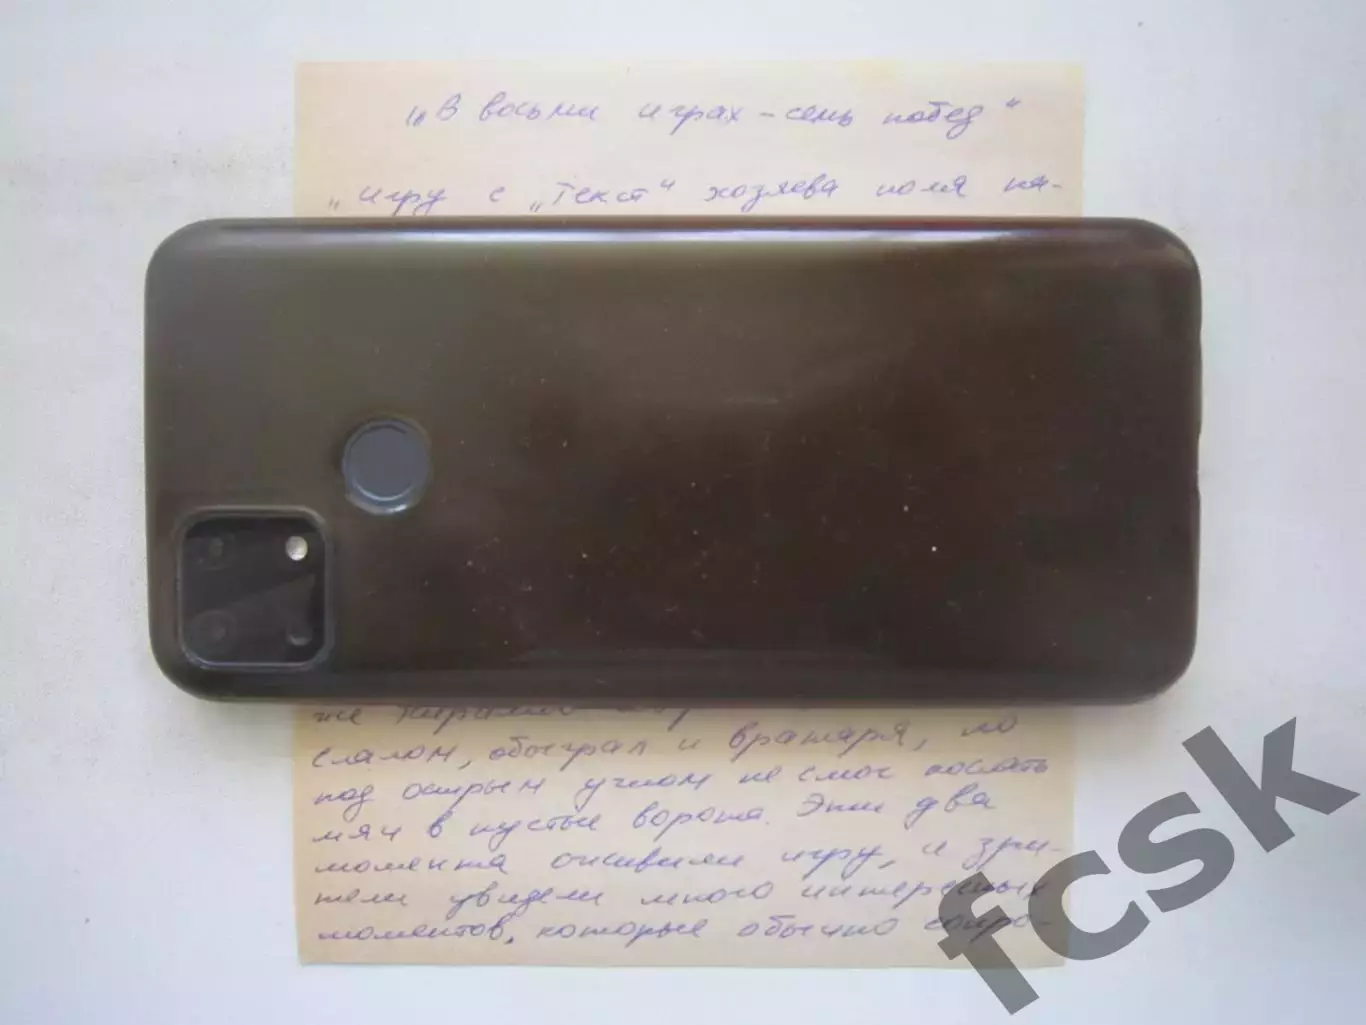 „В восьми играх – семь побед“
„игру с „Текст“ хозяева поля на-
же
слалом, обыграл и вратаря, но
под острым углом не смог послать
мяч в пустые ворота. Эти два
момента оживили игру, и зри-
тели увидели много интересных
моментов, которые обычно сопро-
fcsk